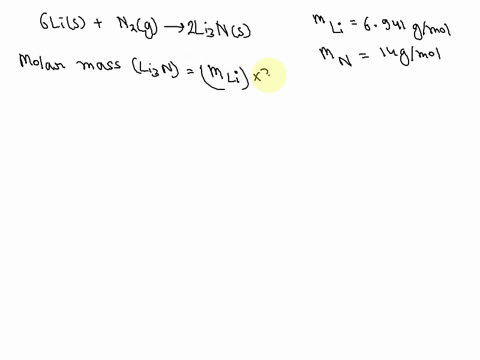 6Li(s) + N₂(g) → 2Li₃N(s)
m Li = 6.941 g/mol
m N = 14g/mol
Molar mass (Li₃N) = (m Li) ×3